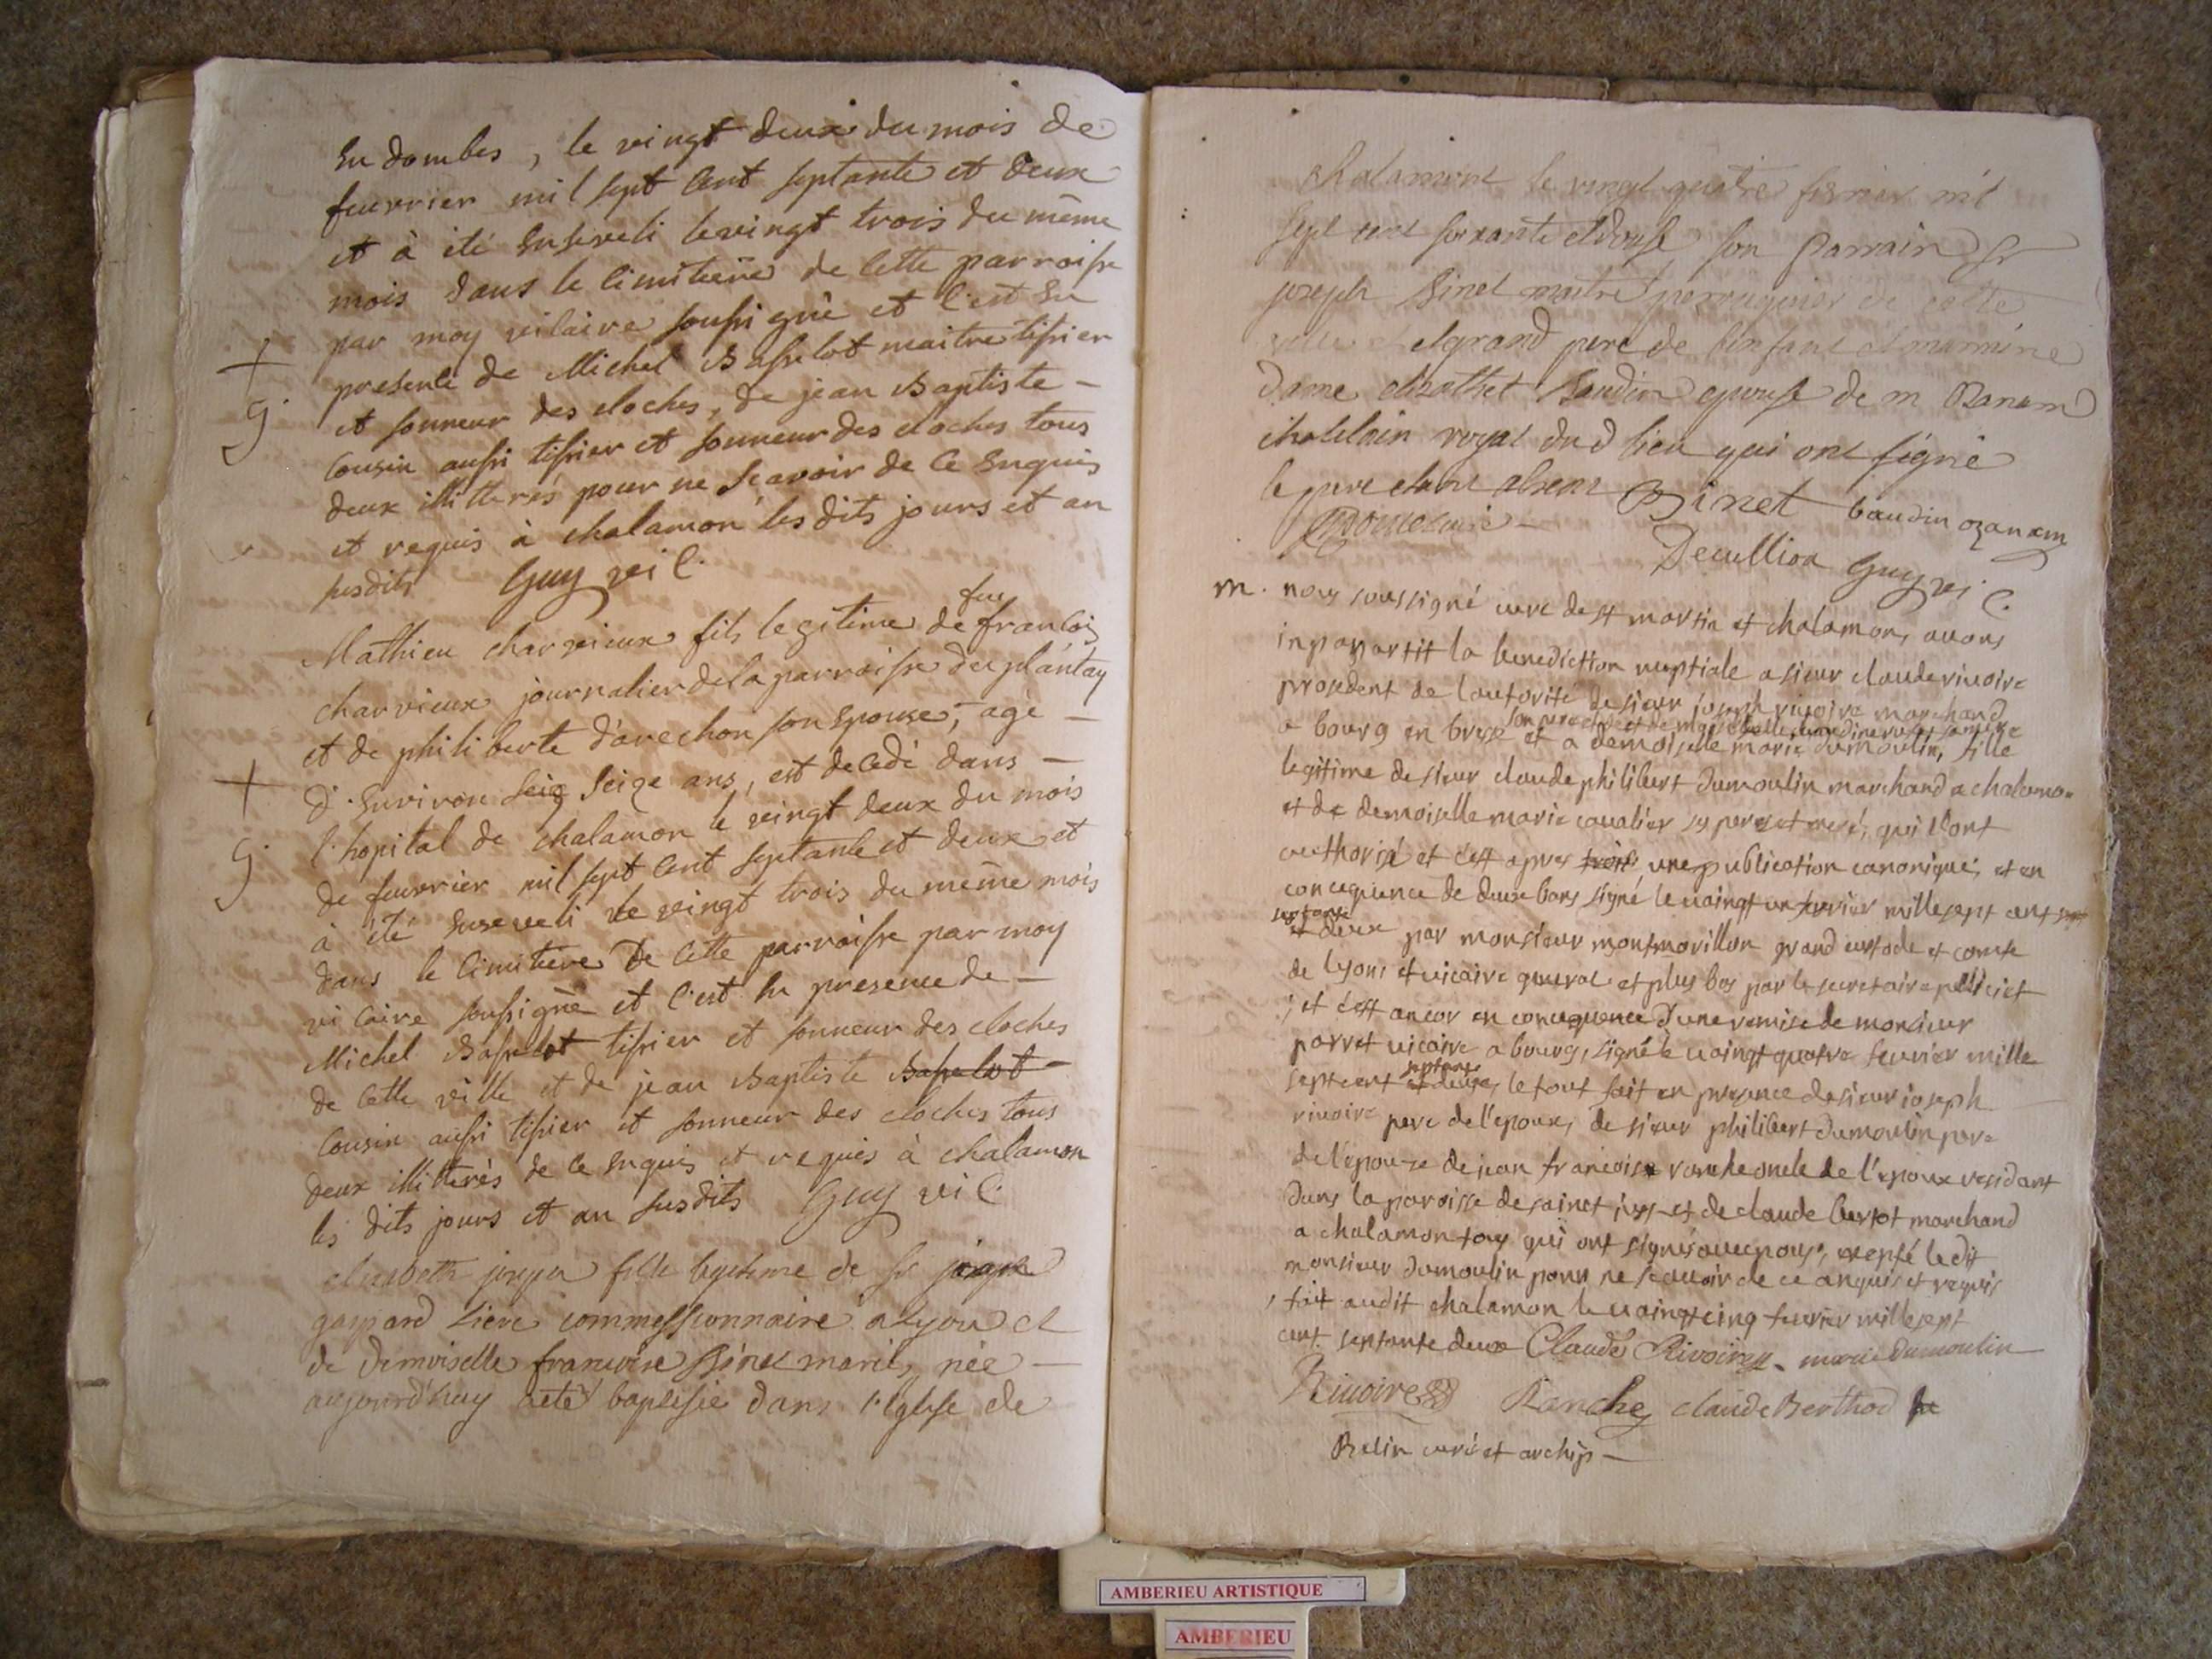 En dombes, le vingt deux du mois de
feuvrier mil sept cent septante et deux
et à été enseveli le vingt trois du même
mois dans le cimitiere de cette parroisse
par moy vicaire soussigné et c'est en
presence de Michel Basselot maitre tissier
et sonneur des cloches, de jean Baptiste -
Cousin aussi tissier et sonneur des cloches tous
deux illitterés pour ne scavoir de ce enquis
et requis à chalamon les dits jours et an
susdits Guy vic.
+
g.
Mathieu charvieux fils legitime de feu francois
charvieux journalier de la parroisse du plantay
et de philiberte d'arechon son epouse, agé -
d'environ seiz seize ans, est decedé dans -
l'hopital de chalamon le vingt deux du mois
de feuvrier mil sept cent septante et deux et
à été enseveli le vingt trois du même mois
dans le cimitiere de cette parroisse par moy
vicaire soussigné et c'est en presence de -
Michel Basselot tissier et sonneur des cloches
de cette ville et de jean Baptiste Basselot -
Cousin aussi tissier et sonneur des cloches tous
deux illitterés de ce enquis et requis à chalamon
les dits jours et an susdits Guy vic.
+
g.
elisabeth fille legitime de sr joseph
gaspard commissionnaire a lyon et
de demoiselle francoise Binet mariés, née -
aujourd'huy a eté baptisée dans l'eglise de
chalamont le vingt quatre fevrier mil
sept cent soixante et douse son parrain sr
joseph Binet maitre perruquier de cette
ville et grand pere de l'enfant et marraine
dame elizabet Baudin epouse de m Ozanam
chatelain royal dud lieu qui ont signé
le pere etant absent Binet baudin ozanam
Decullion Guy vic.
m. nous soussigné curé de st martin et chalamon, avons
inpartit la benediction nuptiale a sieur claude rivoire
procedent de l'autorité de sieur joseph rivoire marchand
a bourg en bresse son pere et de sa mere et a demoiselle marie dumoulin, fille
legitime de sieur claude philibert dumoulin marchand a chalamon
et de demoiselle marie cavalier ses pere et mere, qui l'ont
authorisé et c'est apres trois une publication canonique, et en
concequence de deux bans signé le vaingt un fevrier mille sept cent
septante et deux par monsieur montmorillon grand custode et comte
de lyon, et vicaire general et plus bas par le secretaire
; et c'est ancor en concequence d'une remise de monsieur
parret vicaire a bourg, signé le vaingt quatre fevrier mille
sept cent septante et deux, le tout fait en presence de sieur joseph
rivoire pere de l'epoux, de sieur philibert dumoulin pere
de l'epouze de jean francois ranche oncle de l'epoux residant
dans la paroisse de sainct just et de claude bertot marchand
a chalamon tous qui ont signés avec nous, excepté le dit
monsieur dumoulin pour ne scavoir de ce anquis et requis
, fait audit chalamon le vaingt cinq fevrier mille sept
cent septante deux Claude Rivoire marie dumoulin
Rivoire Ranche claude Berthod
Belin curé et archip -
AMBERIEU ARTISTIQUE
AMBERIEU